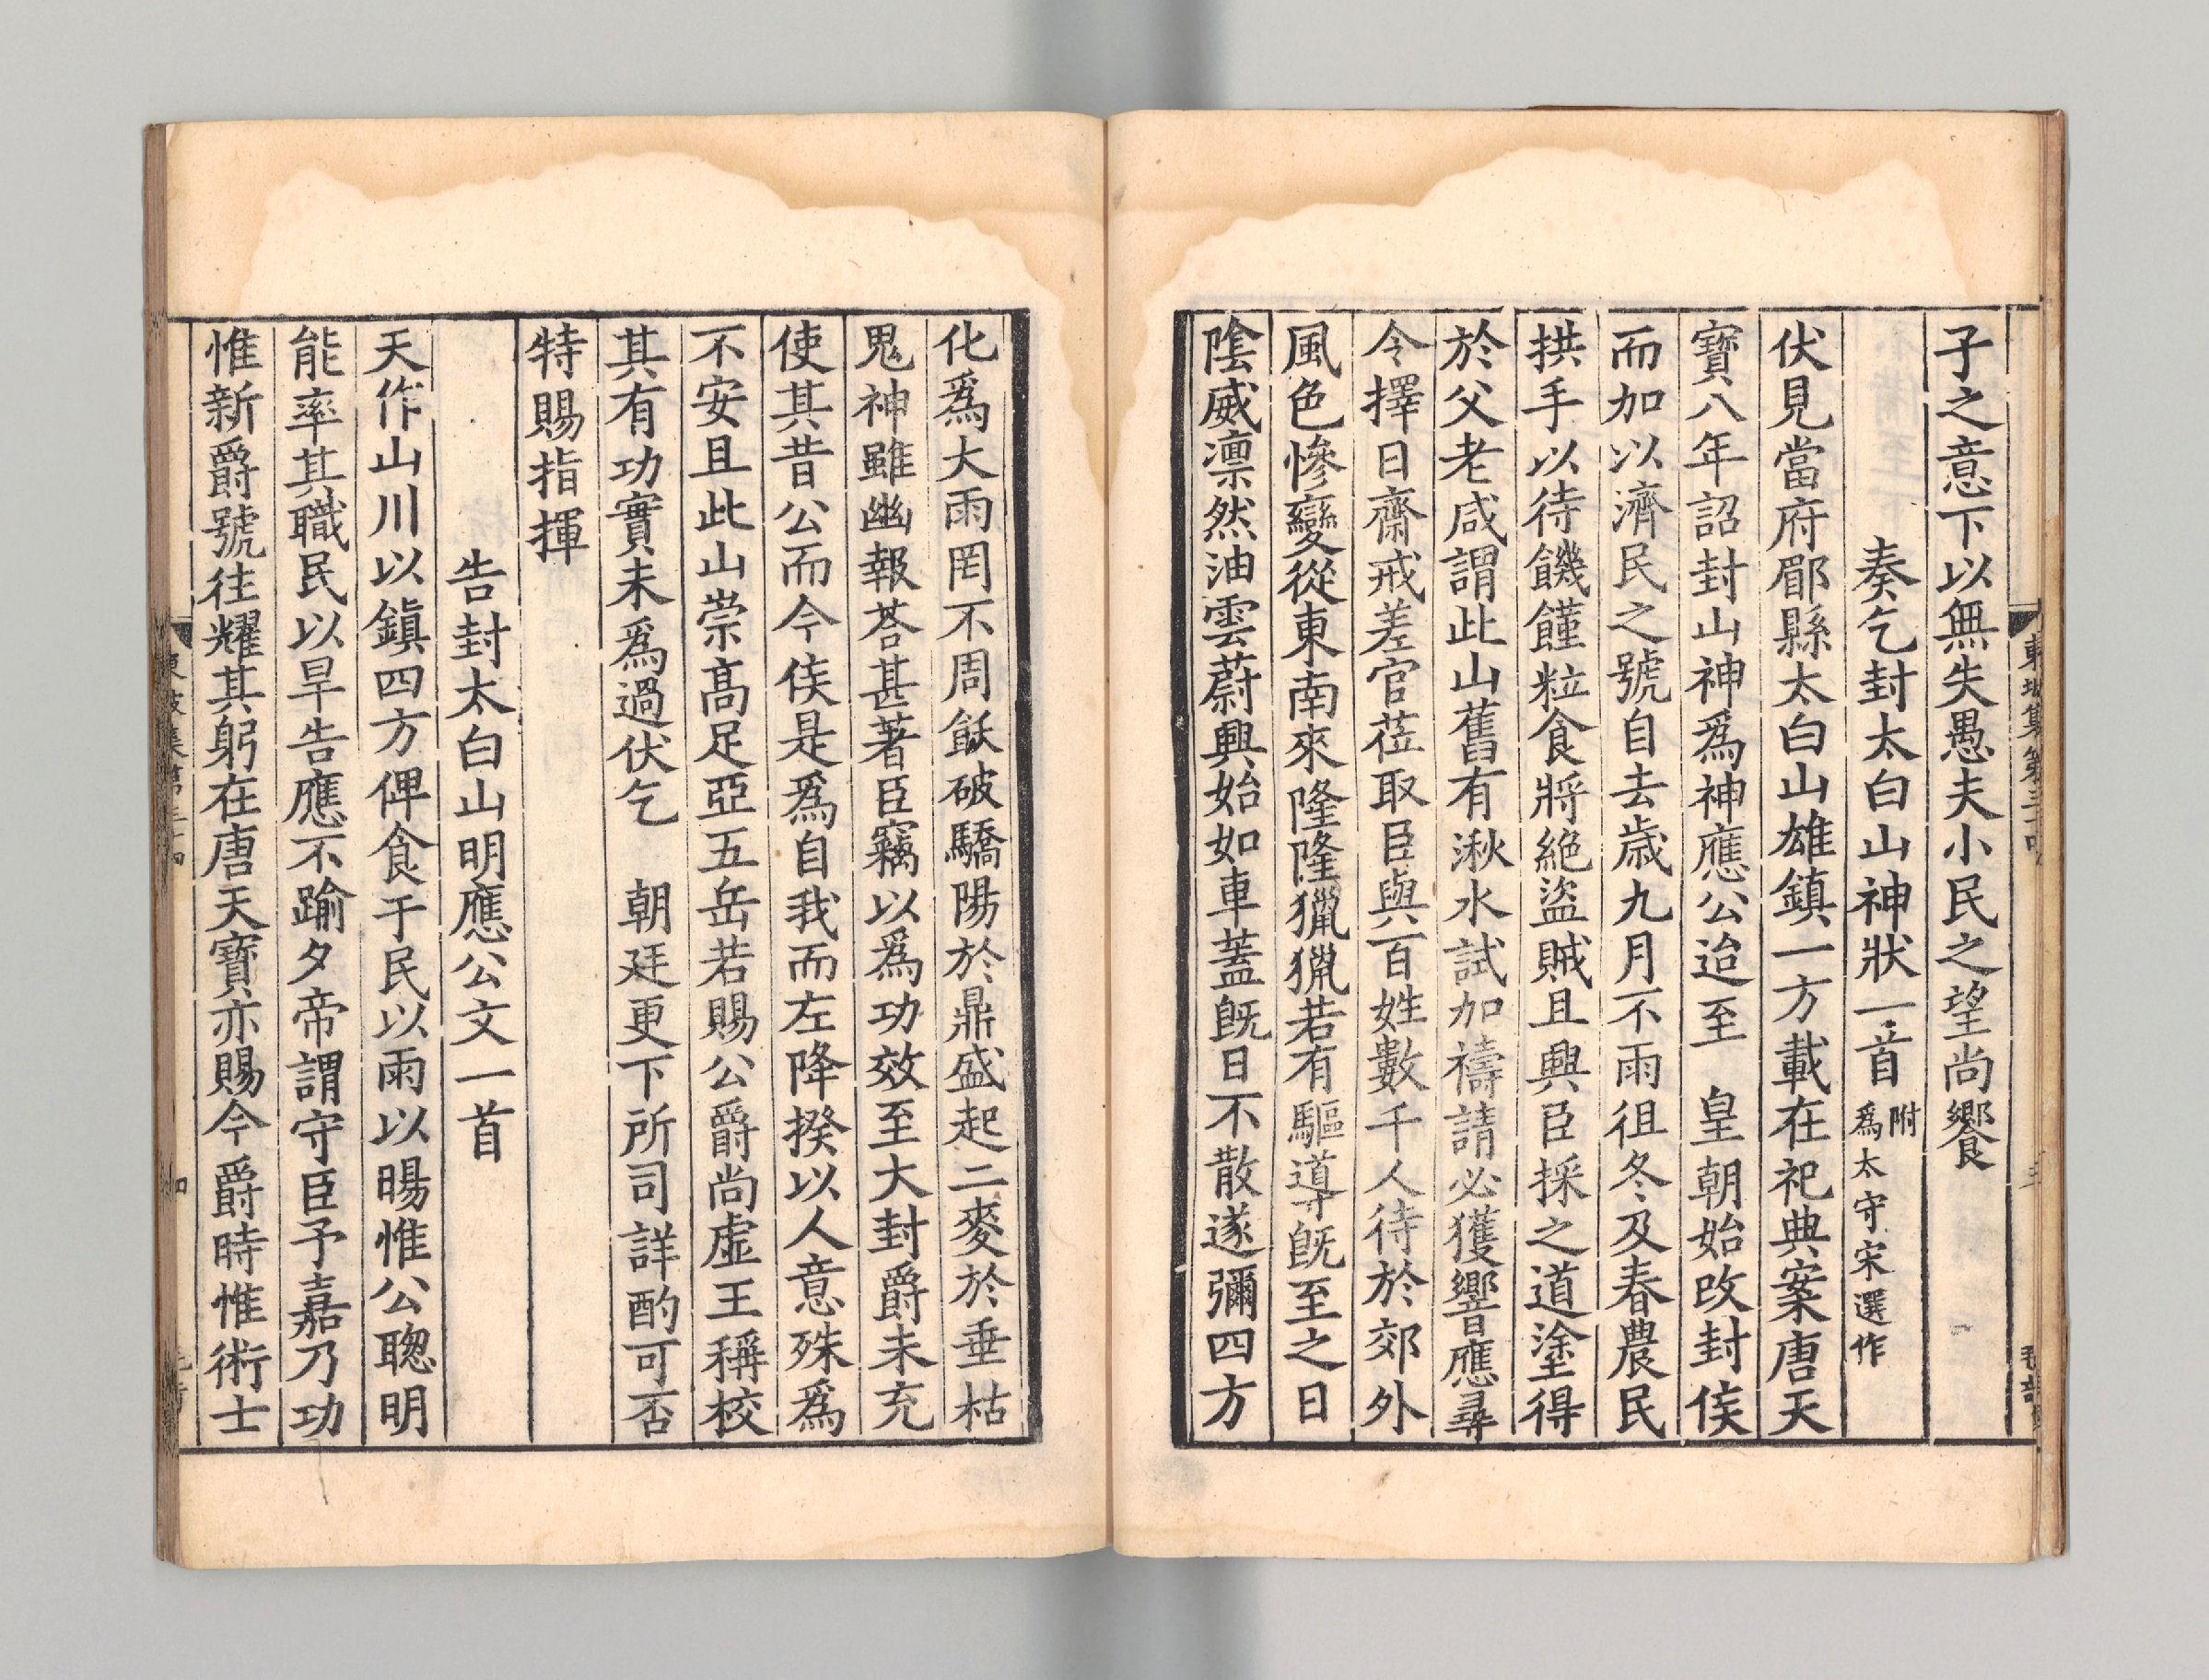 子之意下以無失愚夫小民之望尚饗
奏乞封太白山神狀一首 附爲太守宋選作
伏見當府郿縣太白山雄鎮一方載在祀典案唐天
寶八年詔封山神爲神應公迨至 皇朝始改封侯
而加以濟民之號自去歳九月不雨徂冬及春農民
拱手以待饑饉粒食將絕盜賊且興臣採之道塗得
於父老咸謂此山舊有湫水試加禱請必獲響應尋
令擇日齋戒差官莅取臣與百姓數千人待於郊外
風色慘變從東南來隆隆獵獵若有驅導旣至之日
陰威凛然油雲蔚興始如車蓋旣日不散遂彌四方
化爲大雨罔不周飫破驕陽於鼎盛起二麥於垂枯
鬼神雖幽報荅甚著臣竊以爲功效至大封爵未充
使其昔公而今侯是爲自我而左降揆以人意殊爲
不安且此山崇高足亞五岳若賜公爵尚虛王稱校
其有功實未爲過伏乞 朝廷更下所司詳酌可否
特賜指揮
告封太白山明應公文一首
天作山川以鎮四方俾食于民以雨以暘惟公聰明
能率其職民以旱告應不踰夕帝謂守臣予嘉乃功
惟新爵號往耀其躬在唐天寶亦賜今爵時惟術士
東坡集第三十四
三
東坡集第三十四
四